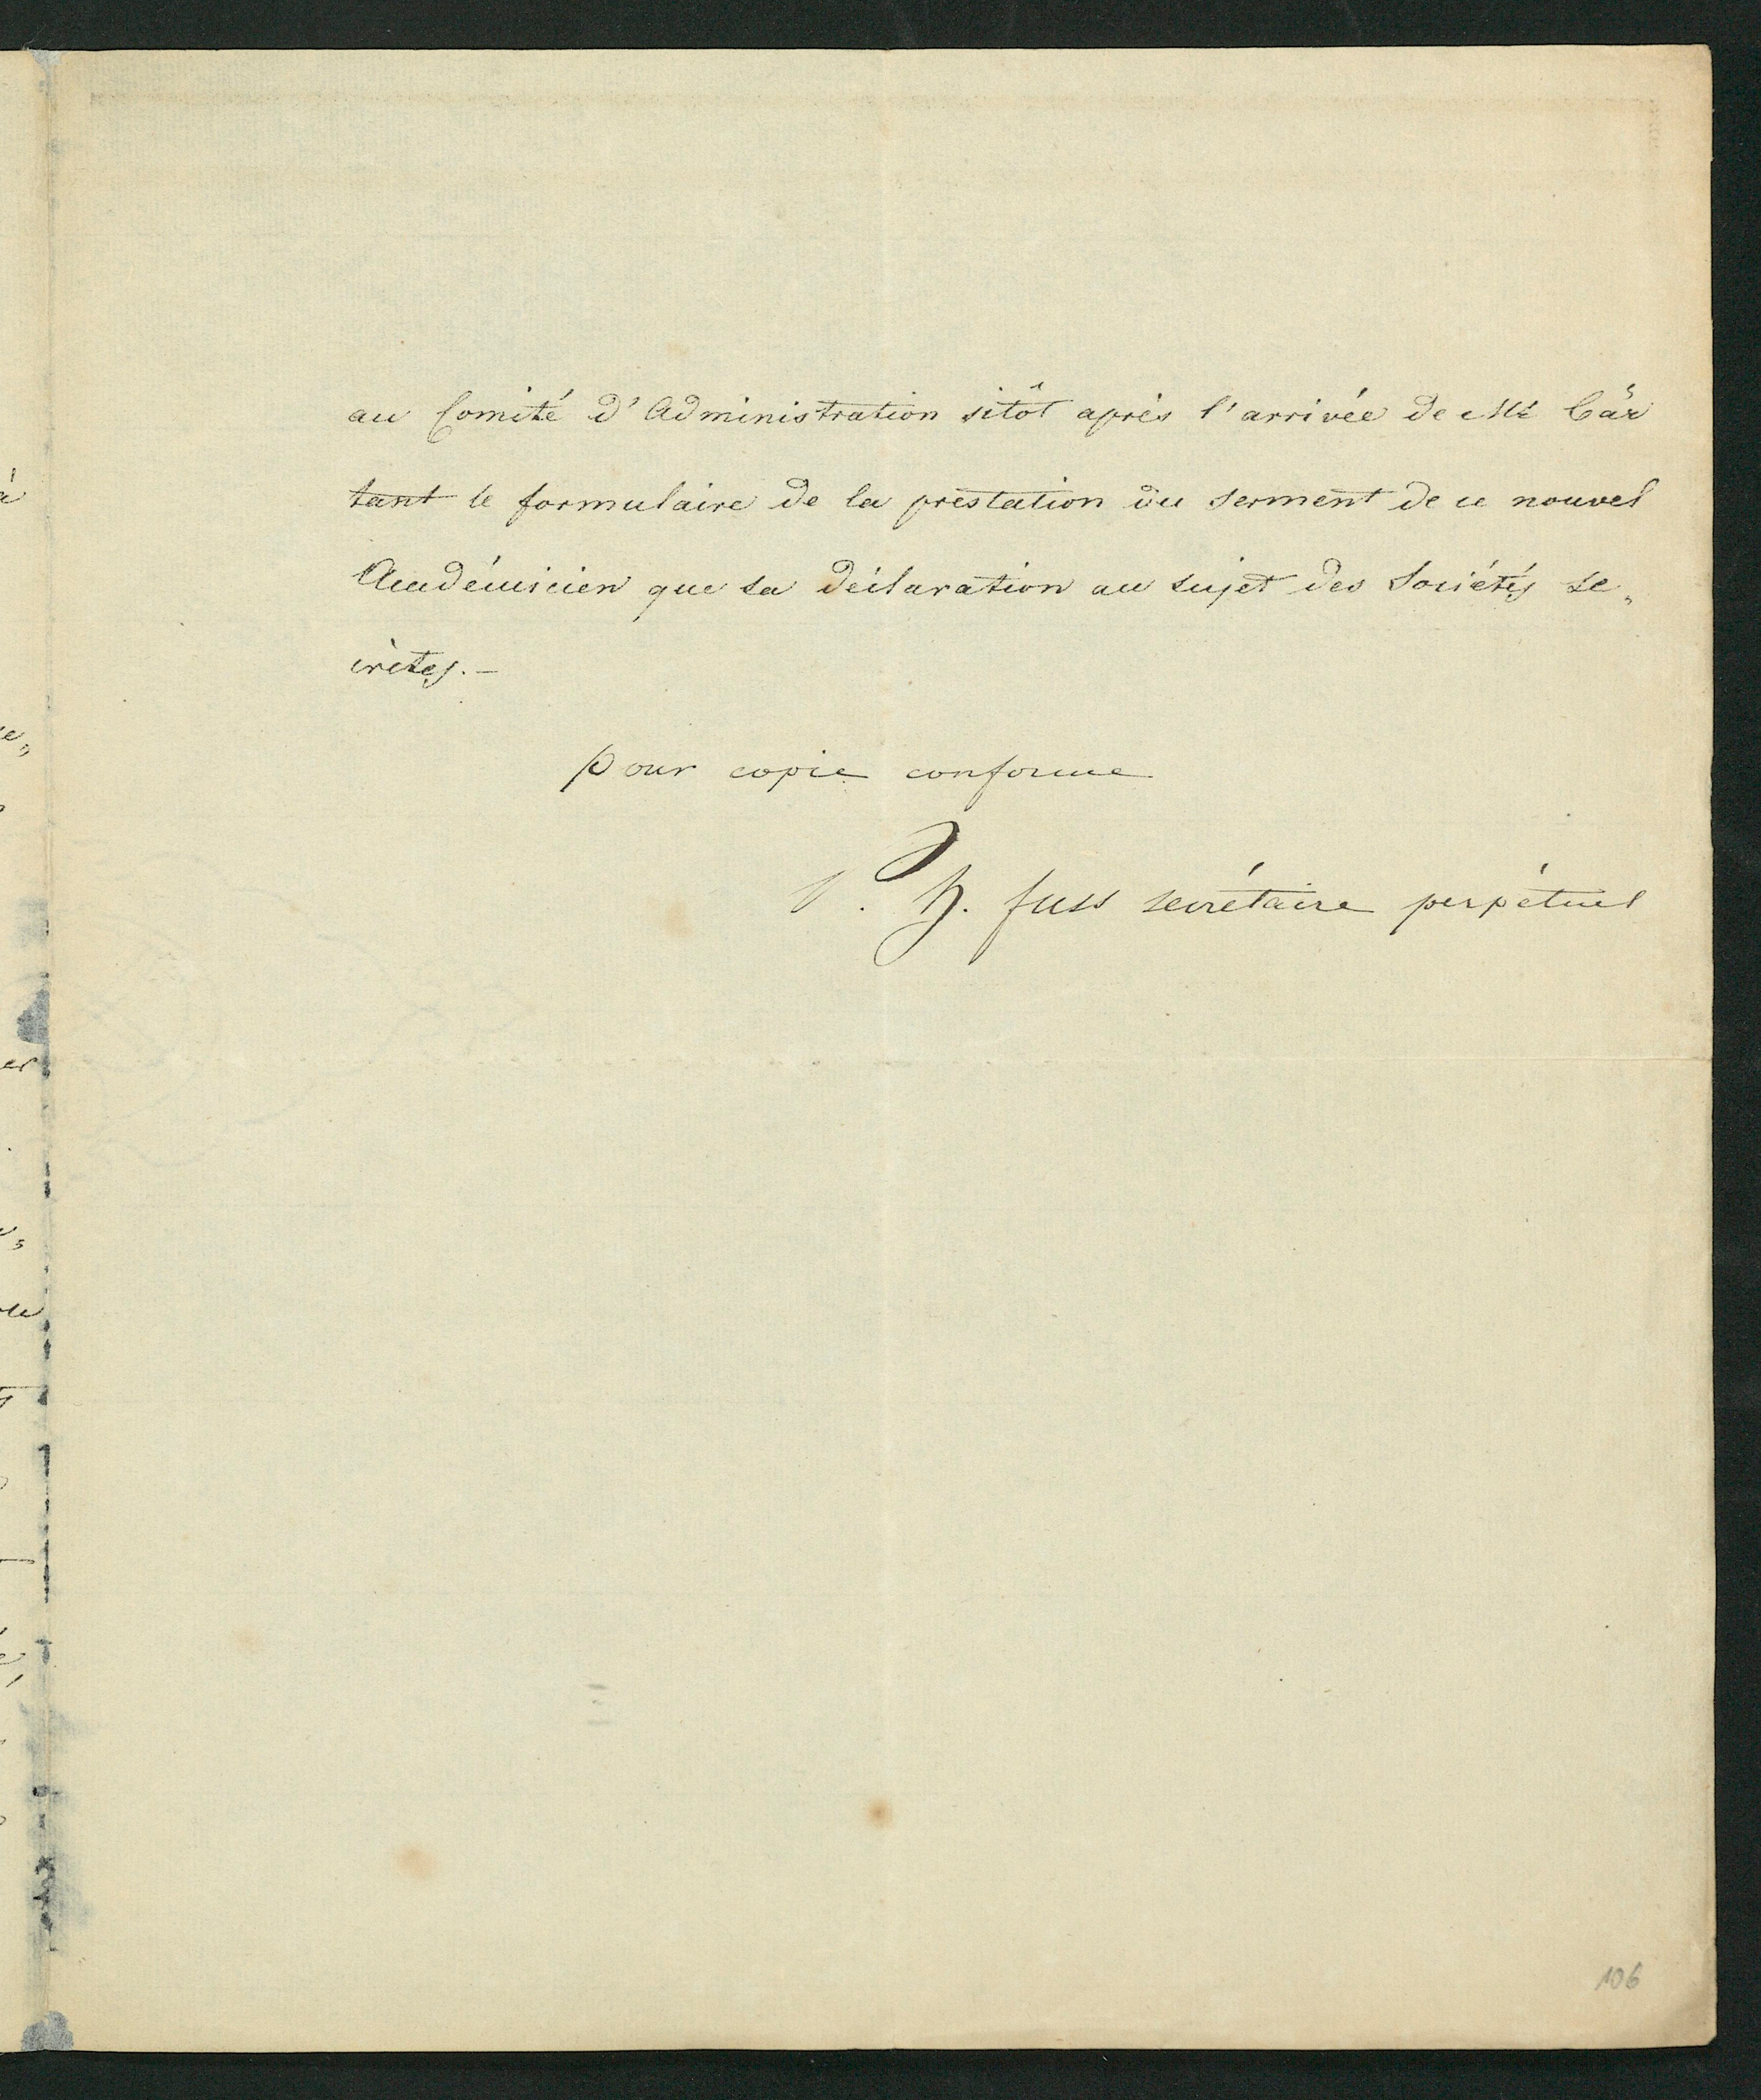 au Comité d'Administration sitôt après l'arrivée de Mr Bär
tant le formulaire de la préstation du serment de ce nouvel
Académicien que sa déclaration au sujet des Sociétés se„
crètes.—
pour copie conforme
P. H. Fuss secrétaire perpétuel
106